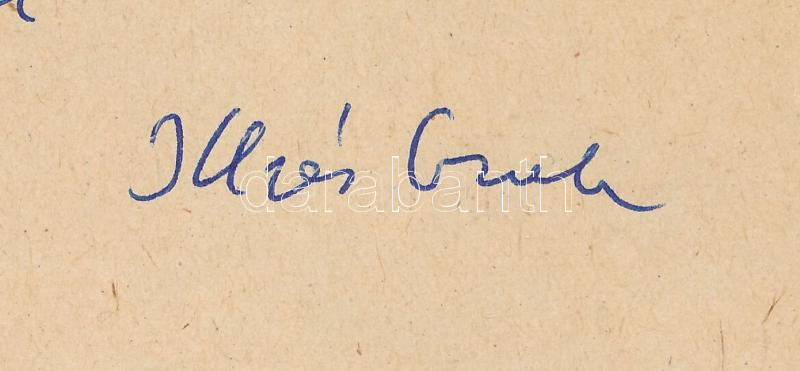 Illyés Gyula
darabanth